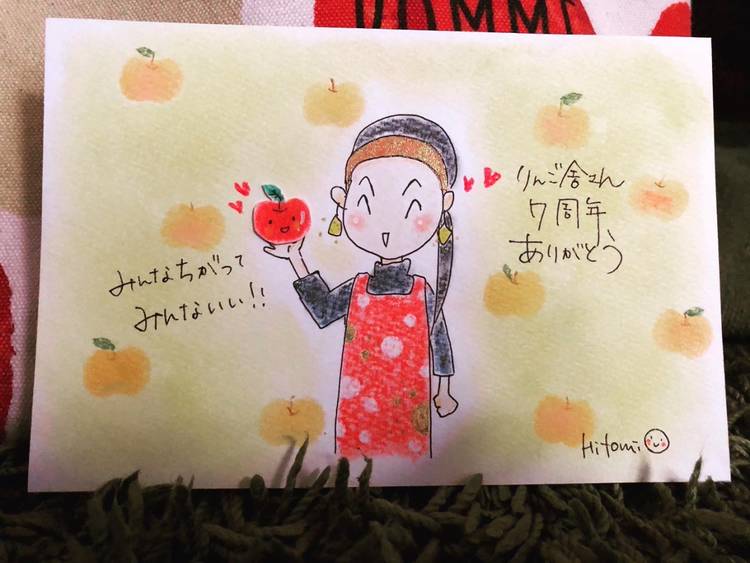 りんご舎さん
7周年、
ありがとう
みんなちがって
みんないい!!
Hitomi